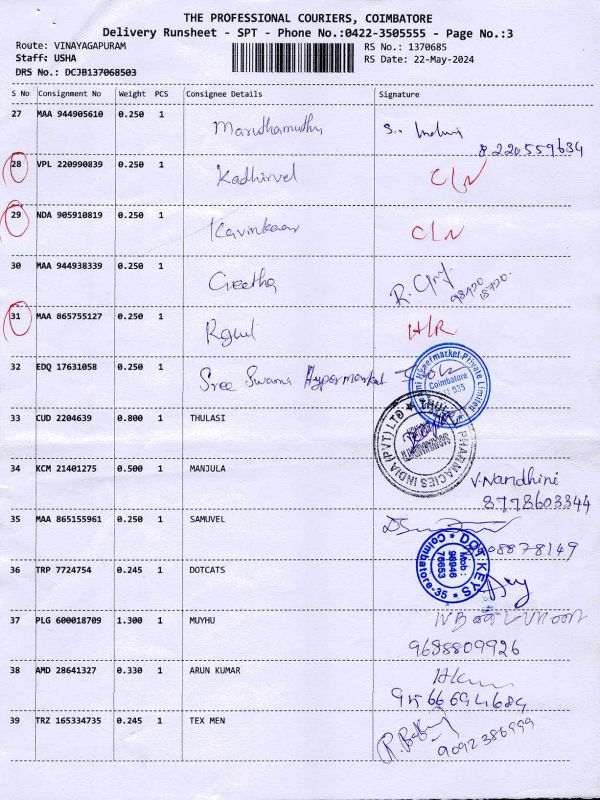 THE PROFESSIONAL COURIERS, COIMBATORE
Delivery Runsheet - SPT - Phone No.:0422-3505555 - Page No.:3
Route: VINAYAGAPURAM RS No.: 1370685
Staff: USHA RS Date: 22-May-2024
DRS No.: DCJB137068503
S No Consignment No Weight PCS Consignee Details Signature
27 MAA 944905610 0.250 1 Maruthamuthu
8220559634
28 VPL 220990839 0.250 1 Kadhirvel C/N
29 NDA 905910819 0.250 1 C/N
30 MAA 944938339 0.250 1 Geetha R.
31 MAA 865755127 0.250 1
32 EDQ 17631058 0.250 1 Sree Swarna Hypermarket
Hypermarket Private Limited
Coimbatore
33 CUD 2204639 0.800 1 THULASI
THULASI PHARMACIES INDIA (PVT) LTD
34 KCM 21401275 0.500 1 MANJULA V. Nandhini
8778603344
35 MAA 865155961 0.250 1 SAMUVEL
08878149
36 TRP 7724754 0.245 1 DOTCATS
DOT KEYS
Mob:
98946
76653
Coimbatore-35
37 PLG 600018709 1.300 1 MUYHU
9688809926
38 AMD 28641327 0.330 1 ARUN KUMAR
39 TRZ 165334735 0.245 1 TEX MEN
9092386999